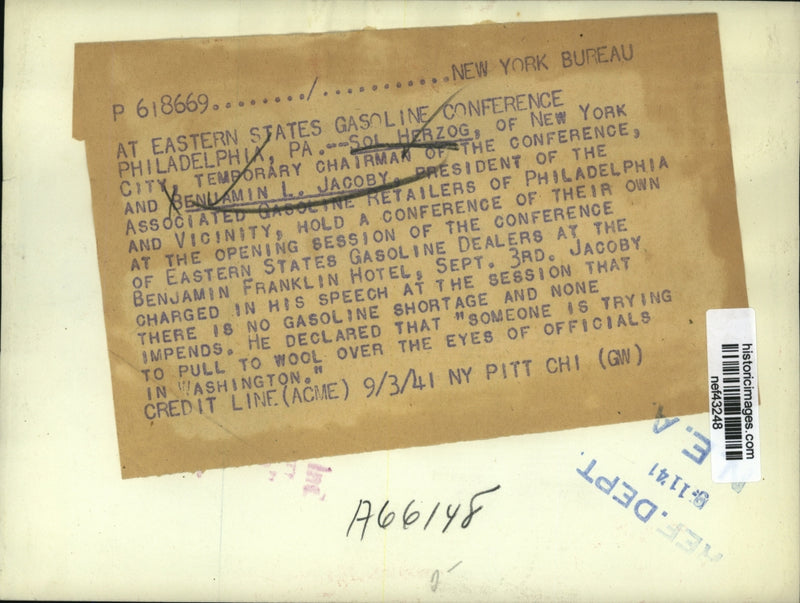 P 618669......../...........NEW YORK BUREAU
AT EASTERN STATES GASOLINE CONFERENCE
PHILADELPHIA, PA.--SOL HERZOG, OF NEW YORK
CITY, TEMPORARY CHAIRMAN OF THE CONFERENCE,
AND BENJAMIN L. JACOBY, PRESIDENT OF THE
ASSOCIATED GASOLINE RETAILERS OF PHILADELPHIA
AND VICINITY, HOLD A CONFERENCE OF THEIR OWN
AT THE OPENING SESSION OF THE CONFERENCE
OF EASTERN STATES GASOLINE DEALERS AT THE
BENJAMIN FRANKLIN HOTEL, SEPT. 3RD. JACOBY
CHARGED IN HIS SPEECH AT THE SESSION THAT
THERE IS NO GASOLINE SHORTAGE AND NONE
IMPENDS. HE DECLARED THAT "SOMEONE IS TRYING
TO PULL TO WOOL OVER THE EYES OF OFFICIALS
IN WASHINGTON."
CREDIT LINE (ACME) 9/3/41 NY PITT CHI (GW)
historicimages.com
nef43248
E. A
9-1141
REF. DEPT.
A66148